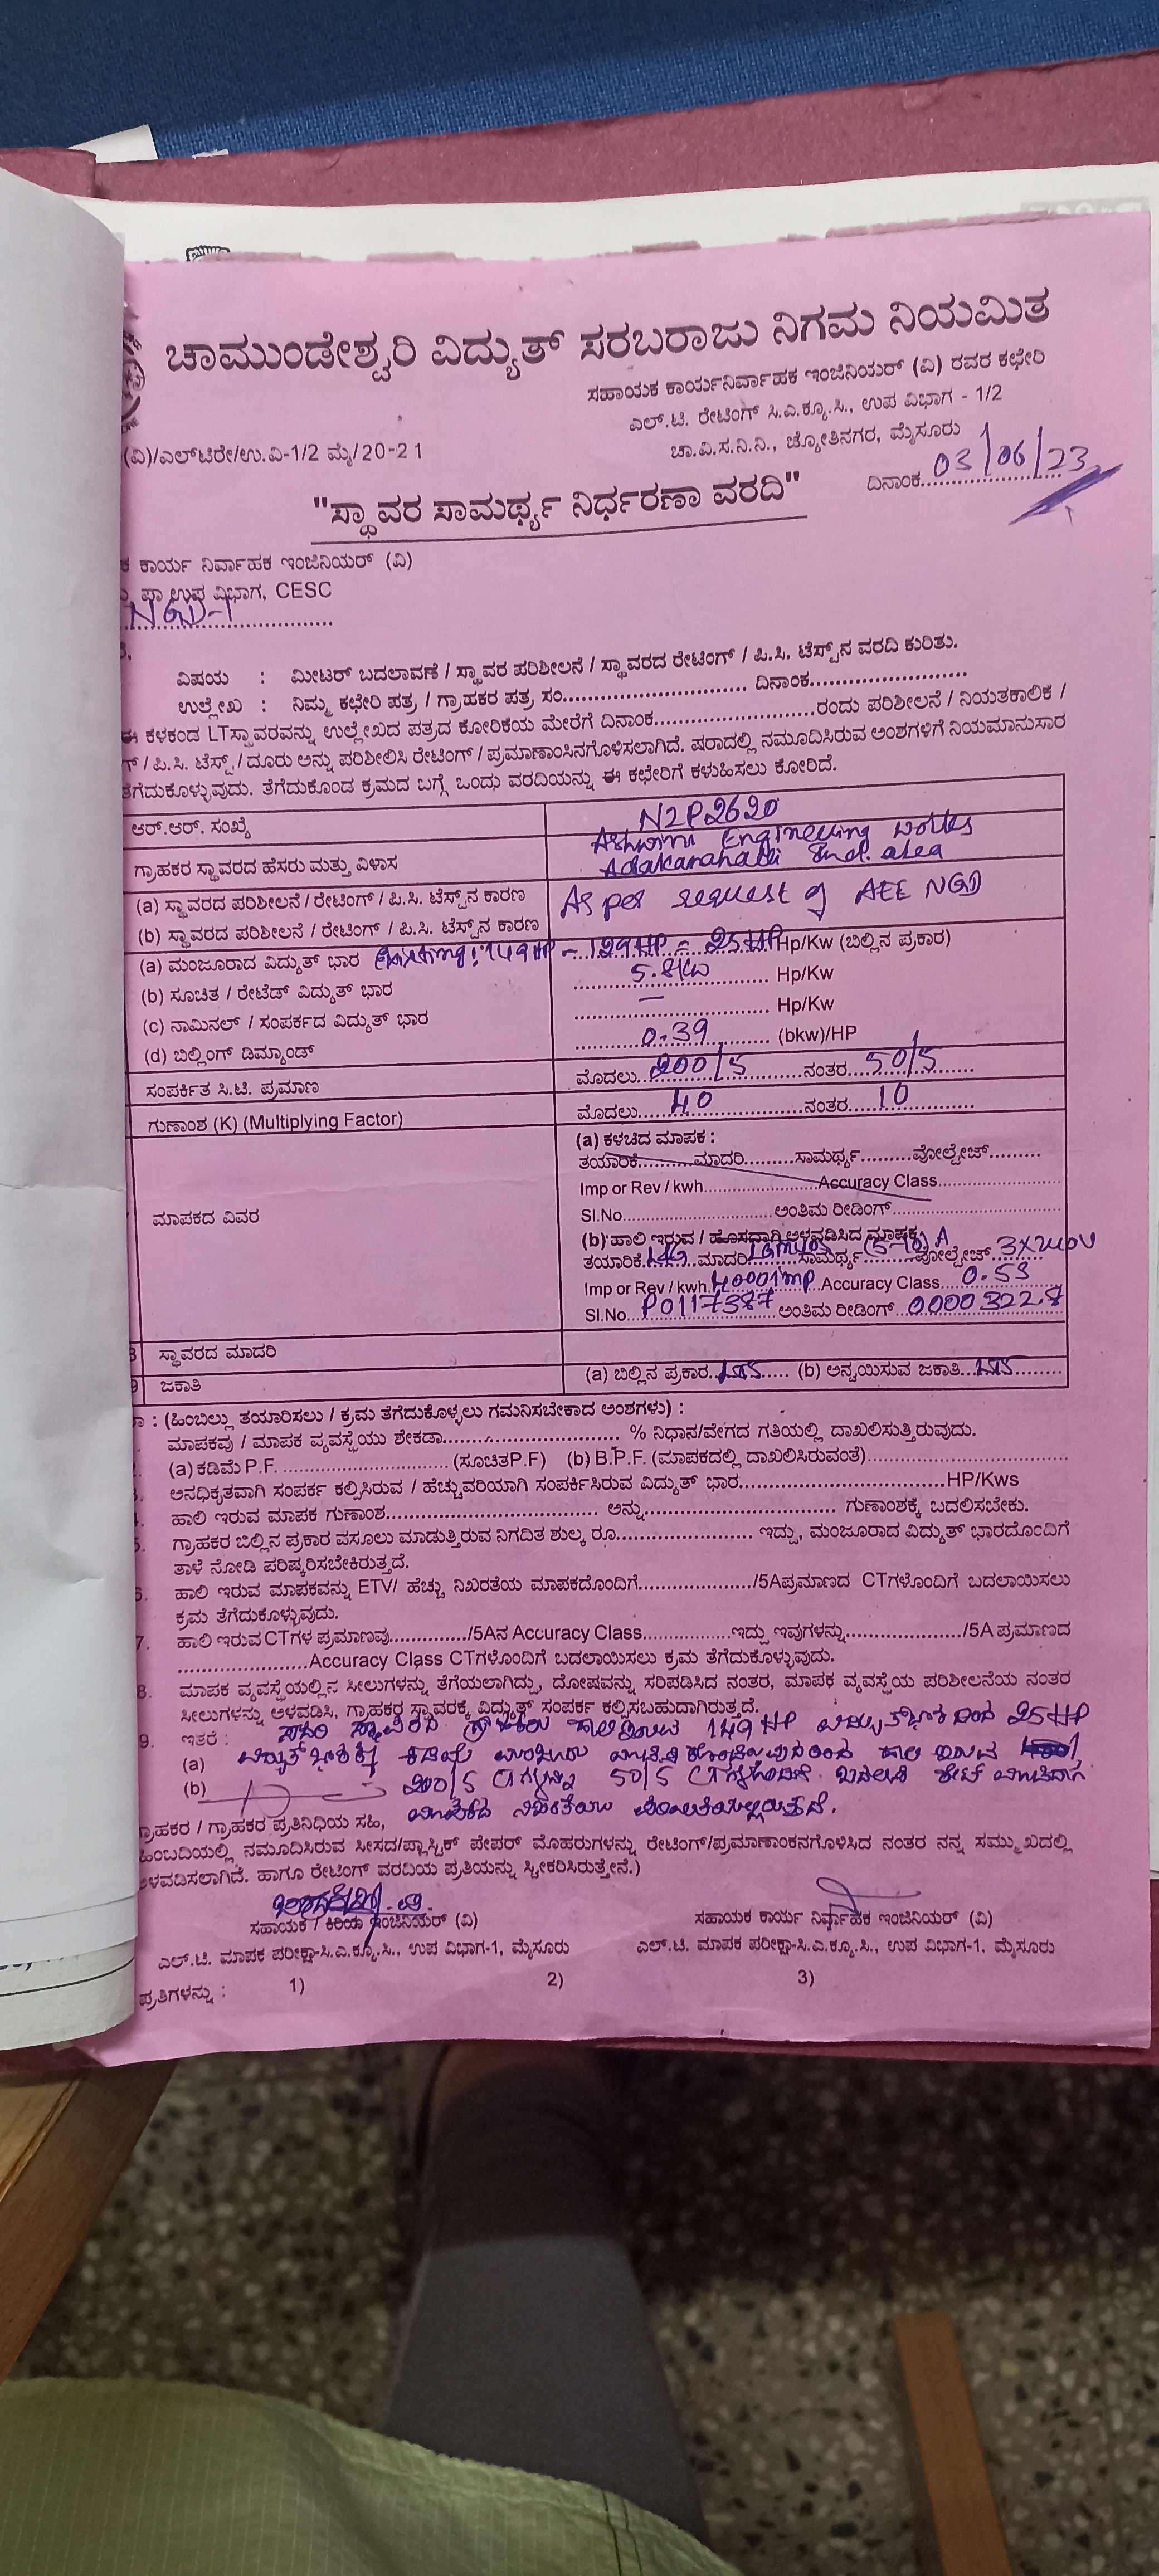 ಚಾಮುಂಡೇಶ್ವರಿ ವಿದ್ಯುತ್ ಸರಬರಾಜು ನಿಗಮ ನಿಯಮಿತ
ಸಹಾಯಕ ಕಾರ್ಯನಿರ್ವಾಹಕ ಇಂಜಿನಿಯರ್ (ವಿ) ರವರ ಕಛೇರಿ
ಎಲ್.ಟಿ. ರೇಟಿಂಗ್ ಸಿ.ಎ.ಕ್ಯೂ.ಸಿ., ಉಪ ವಿಭಾಗ - 1/2
ಚಾ.ವಿ.ಸ.ನಿ.ನಿ., ಜ್ಯೋತಿನಗರ, ಮೈಸೂರು
(ವಿ)/ಎಲ್‌ಟಿರೇ/ಉ.ವಿ-1/2 ಮೈ/20-21
ದಿನಾಂಕ..03/06/23
"ಸ್ಥಾವರ ಸಾಮರ್ಥ್ಯ ನಿರ್ಧರಣಾ ವರದಿ"
ಕ ಕಾರ್ಯ ನಿರ್ವಾಹಕ ಇಂಜಿನಿಯರ್ (ವಿ)
ಉಪ ವಿಭಾಗ, CESC
NGD-1
ವಿಷಯ : ಮೀಟರ್ ಬದಲಾವಣೆ / ಸ್ಥಾವರ ಪರಿಶೀಲನೆ / ಸ್ಥಾವರದ ರೇಟಿಂಗ್ / ಪಿ.ಸಿ. ಟೆಸ್ಟ್‌ನ ವರದಿ ಕುರಿತು.
ಉಲ್ಲೇಖ : ನಿಮ್ಮ ಕಛೇರಿ ಪತ್ರ / ಗ್ರಾಹಕರ ಪತ್ರ ಸಂ............ ದಿನಾಂಕ............
ಈ ಕೆಳಕಂಡ LTಸ್ಥಾವರವನ್ನು ಉಲ್ಲೇಖದ ಪತ್ರದ ಕೋರಿಕೆಯ ಮೇರೆಗೆ ದಿನಾಂಕ............ರಂದು ಪರಿಶೀಲನೆ / ನಿಯತಕಾಲಿಕ /
ಗ್ / ಪಿ.ಸಿ. ಟೆಸ್ಟ್ / ದೂರು ಅನ್ನು ಪರಿಶೀಲಿಸಿ ರೇಟಿಂಗ್ / ಪ್ರಮಾಣಾಂಕನಗೊಳಿಸಲಾಗಿದೆ. ಷರಾದಲ್ಲಿ ನಮೂದಿಸಿರುವ ಅಂಶಗಳಿಗೆ ನಿಯಮಾನುಸಾರ
ತೆಗೆದುಕೊಳ್ಳುವುದು. ತೆಗೆದುಕೊಂಡ ಕ್ರಮದ ಬಗ್ಗೆ ಒಂದು ವರದಿಯನ್ನು ಈ ಕಛೇರಿಗೆ ಕಳುಹಿಸಲು ಕೋರಿದೆ.
ಆರ್.ಆರ್. ಸಂಖ್ಯೆ N2P2620
ಗ್ರಾಹಕರ ಸ್ಥಾವರದ ಹೆಸರು ಮತ್ತು ವಿಳಾಸ Ashwini Engineering works
Adakanahalli Ind. area
(a) ಸ್ಥಾವರದ ಪರಿಶೀಲನೆ / ರೇಟಿಂಗ್ / ಪಿ.ಸಿ. ಟೆಸ್ಟ್‌ನ ಕಾರಣ As per request of AEE NGD
(b) ಸ್ಥಾವರದ ಪರಿಶೀಲನೆ / ರೇಟಿಂಗ್ / ಪಿ.ಸಿ. ಟೆಸ್ಟ್‌ನ ಕಾರಣ
(a) ಮಂಜೂರಾದ ವಿದ್ಯುತ್ ಭಾರ Existing: 149HP - 129HP = 25HP Hp/Kw (ಬಿಲ್ಲಿನ ಪ್ರಕಾರ)
(b) ಸೂಚಿತ / ರೇಟೆಡ್ ವಿದ್ಯುತ್ ಭಾರ 5.8KW Hp/Kw
(c) ನಾಮಿನಲ್ / ಸಂಪರ್ಕದ ವಿದ್ಯುತ್ ಭಾರ — Hp/Kw
(d) ಬಿಲ್ಲಿಂಗ್ ಡಿಮ್ಯಾಂಡ್ 0.39 (bkw)/HP
ಸಂಪರ್ಕಿತ ಸಿ.ಟಿ. ಪ್ರಮಾಣ ಮೊದಲು 200/5 ನಂತರ 50/5
ಗುಣಾಂಶ (K) (Multiplying Factor) ಮೊದಲು 40 ನಂತರ 10
ಮಾಪಕದ ವಿವರ
(a) ಕಳಚಿದ ಮಾಪಕ :
ತಯಾರಿಕೆ.........ಮಾದರಿ.........ಸಾಮರ್ಥ್ಯ.........ವೋಲ್ಟೇಜ್.........
Imp or Rev / kwh............Accuracy Class............
SI.No............ಅಂತಿಮ ರೀಡಿಂಗ್............
(b) ಹಾಲಿ ಇರುವ / ಹೊಸದಾಗಿ ಅಳವಡಿಸಿದ ಮಾಪಕ
ತಯಾರಿಕೆ L&G ಮಾದರಿ ಸಾಮರ್ಥ್ಯ (5-10)A ವೋಲ್ಟೇಜ್ 3X240V
Imp or Rev / kwh 4000imp Accuracy Class 0.5S
SI.No. P0117387 ಅಂತಿಮ ರೀಡಿಂಗ್ 0000322.8
8 ಸ್ಥಾವರದ ಮಾದರಿ
9 ಜಕಾತಿ (a) ಬಿಲ್ಲಿನ ಪ್ರಕಾರ LT5 (b) ಅನ್ವಯಿಸುವ ಜಕಾತಿ LT5
: (ಹಿಂಬಿಲ್ಲು ತಯಾರಿಸಲು / ಕ್ರಮ ತೆಗೆದುಕೊಳ್ಳಲು ಗಮನಿಸಬೇಕಾದ ಅಂಶಗಳು) :
ಮಾಪಕವು / ಮಾಪಕ ವ್ಯವಸ್ಥೆಯು ಶೇಕಡಾ............ % ನಿಧಾನ/ವೇಗದ ಗತಿಯಲ್ಲಿ ದಾಖಲಿಸುತ್ತಿರುವುದು.
(a) ಕಡಿಮೆ P.F. ............ (ಸೂಚಿತP.F) (b) B.P.F. (ಮಾಪಕದಲ್ಲಿ ದಾಖಲಿಸಿರುವಂತೆ)............
ಅನಧಿಕೃತವಾಗಿ ಸಂಪರ್ಕ ಕಲ್ಪಿಸಿರುವ / ಹೆಚ್ಚುವರಿಯಾಗಿ ಸಂಪರ್ಕಿಸಿರುವ ವಿದ್ಯುತ್ ಭಾರ............HP/Kws
ಹಾಲಿ ಇರುವ ಮಾಪಕ ಗುಣಾಂಶ............ ಅನ್ನು............ ಗುಣಾಂಶಕ್ಕೆ ಬದಲಿಸಬೇಕು.
5. ಗ್ರಾಹಕರ ಬಿಲ್ಲಿನ ಪ್ರಕಾರ ವಸೂಲು ಮಾಡುತ್ತಿರುವ ನಿಗದಿತ ಶುಲ್ಕ ರೂ............ ಇದ್ದು, ಮಂಜೂರಾದ ವಿದ್ಯುತ್ ಭಾರದೊಂದಿಗೆ
ತಾಳೆ ನೋಡಿ ಪರಿಷ್ಕರಿಸಬೇಕಿರುತ್ತದೆ.
6. ಹಾಲಿ ಇರುವ ಮಾಪಕವನ್ನು ETV/ ಹೆಚ್ಚು ನಿಖರತೆಯ ಮಾಪಕದೊಂದಿಗೆ............/5Aಪ್ರಮಾಣದ CTಗಳೊಂದಿಗೆ ಬದಲಾಯಿಸಲು
ಕ್ರಮ ತೆಗೆದುಕೊಳ್ಳುವುದು.
7. ಹಾಲಿ ಇರುವ CTಗಳ ಪ್ರಮಾಣವು............/5Aನ Accuracy Class............ಇದ್ದು ಇವುಗಳನ್ನು............/5A ಪ್ರಮಾಣದ
............Accuracy Class CTಗಳೊಂದಿಗೆ ಬದಲಾಯಿಸಲು ಕ್ರಮ ತೆಗೆದುಕೊಳ್ಳುವುದು.
8. ಮಾಪಕ ವ್ಯವಸ್ಥೆಯಲ್ಲಿನ ಸೀಲುಗಳನ್ನು ತೆಗೆಯಲಾಗಿದ್ದು, ದೋಷವನ್ನು ಸರಿಪಡಿಸಿದ ನಂತರ, ಮಾಪಕ ವ್ಯವಸ್ಥೆಯ ಪರಿಶೀಲನೆಯ ನಂತರ
ಸೀಲುಗಳನ್ನು ಅಳವಡಿಸಿ, ಗ್ರಾಹಕರ ಸ್ಥಾವರಕ್ಕೆ ವಿದ್ಯುತ್ ಸಂಪರ್ಕ ಕಲ್ಪಿಸಬಹುದಾಗಿರುತ್ತದೆ.
9. ಇತರೆ : ಸದರಿ ಸ್ಥಾವರದ ಗ್ರಾಹಕರು 149 HP ವಿದ್ಯುತ್ ಭಾರದಿಂದ 25HP
(a) ವಿದ್ಯುತ್ ಭಾರಕ್ಕೆ ಹಾಲಿ ಇರುವ
(b) 200/5 CTಗಳನ್ನು 50/5 CTಗಳೊಂದಿಗೆ
ಮಾಪಕದ ನಿಖರತೆಯು
ಗ್ರಾಹಕರ / ಗ್ರಾಹಕರ ಪ್ರತಿನಿಧಿಯ ಸಹಿ,
ಹಿಂಬದಿಯಲ್ಲಿ ನಮೂದಿಸಿರುವ ಸೀಸದ/ಪ್ಲಾಸ್ಟಿಕ್ ಪೇಪರ್ ಮೊಹರುಗಳನ್ನು ರೇಟಿಂಗ್/ಪ್ರಮಾಣಾಂಕನಗೊಳಿಸಿದ ನಂತರ ನನ್ನ ಸಮ್ಮುಖದಲ್ಲಿ
ಅಳವಡಿಸಲಾಗಿದೆ. ಹಾಗೂ ರೇಟಿಂಗ್ ವರದಿಯ ಪ್ರತಿಯನ್ನು ಸ್ವೀಕರಿಸಿರುತ್ತೇನೆ.)
ಸಹಾಯಕ / ಕಿರಿಯ ಇಂಜಿನಿಯರ್ (ವಿ) ಸಹಾಯಕ ಕಾರ್ಯ ನಿರ್ವಾಹಕ ಇಂಜಿನಿಯರ್ (ವಿ)
ಎಲ್.ಟಿ. ಮಾಪಕ ಪರೀಕ್ಷಾ-ಸಿ.ಎ.ಕ್ಯೂ.ಸಿ., ಉಪ ವಿಭಾಗ-1, ಮೈಸೂರು ಎಲ್.ಟಿ. ಮಾಪಕ ಪರೀಕ್ಷಾ-ಸಿ.ಎ.ಕ್ಯೂ.ಸಿ., ಉಪ ವಿಭಾಗ-1, ಮೈಸೂರು
ಪ್ರತಿಗಳನ್ನು : 1) 2) 3)